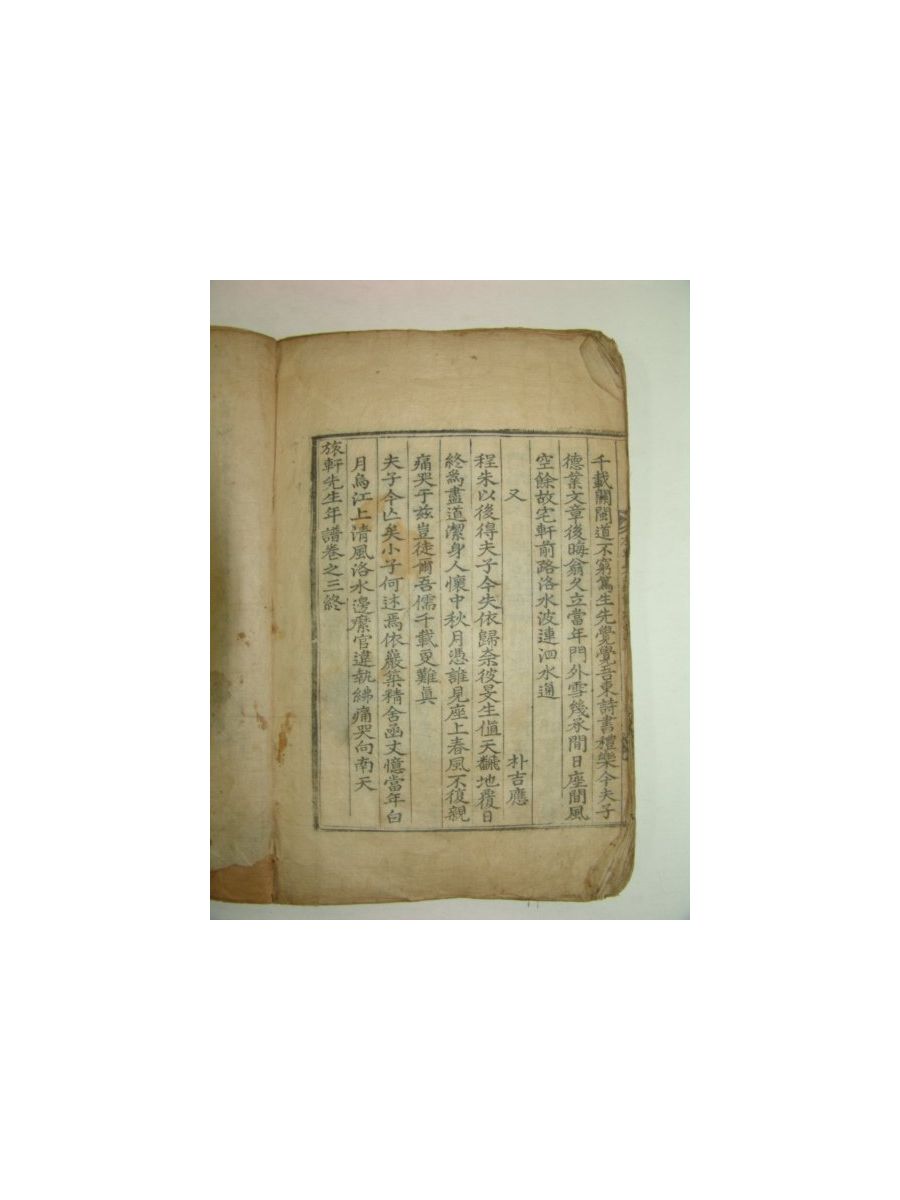 千載關閩道不窮篤生先覺覺吾東詩書禮樂今夫子
德業文章後晦翁久立當年門外雪幾承閒日座間風
空餘故宅軒前路洛水波連泗水通
又 朴吉應
程朱以後得夫子今失依歸奈彼旻生値天飜地覆日
終爲盡道潔身人懷中秋月憑誰見座上春風不復親
痛哭于玆豈徒爾吾儒千載更難眞
夫子今亡矣小子何述焉依巖築精舍函丈憶當年白
月烏江上淸風洛水邊縻官違執紼痛哭向南天
旅軒先生年譜卷之三終